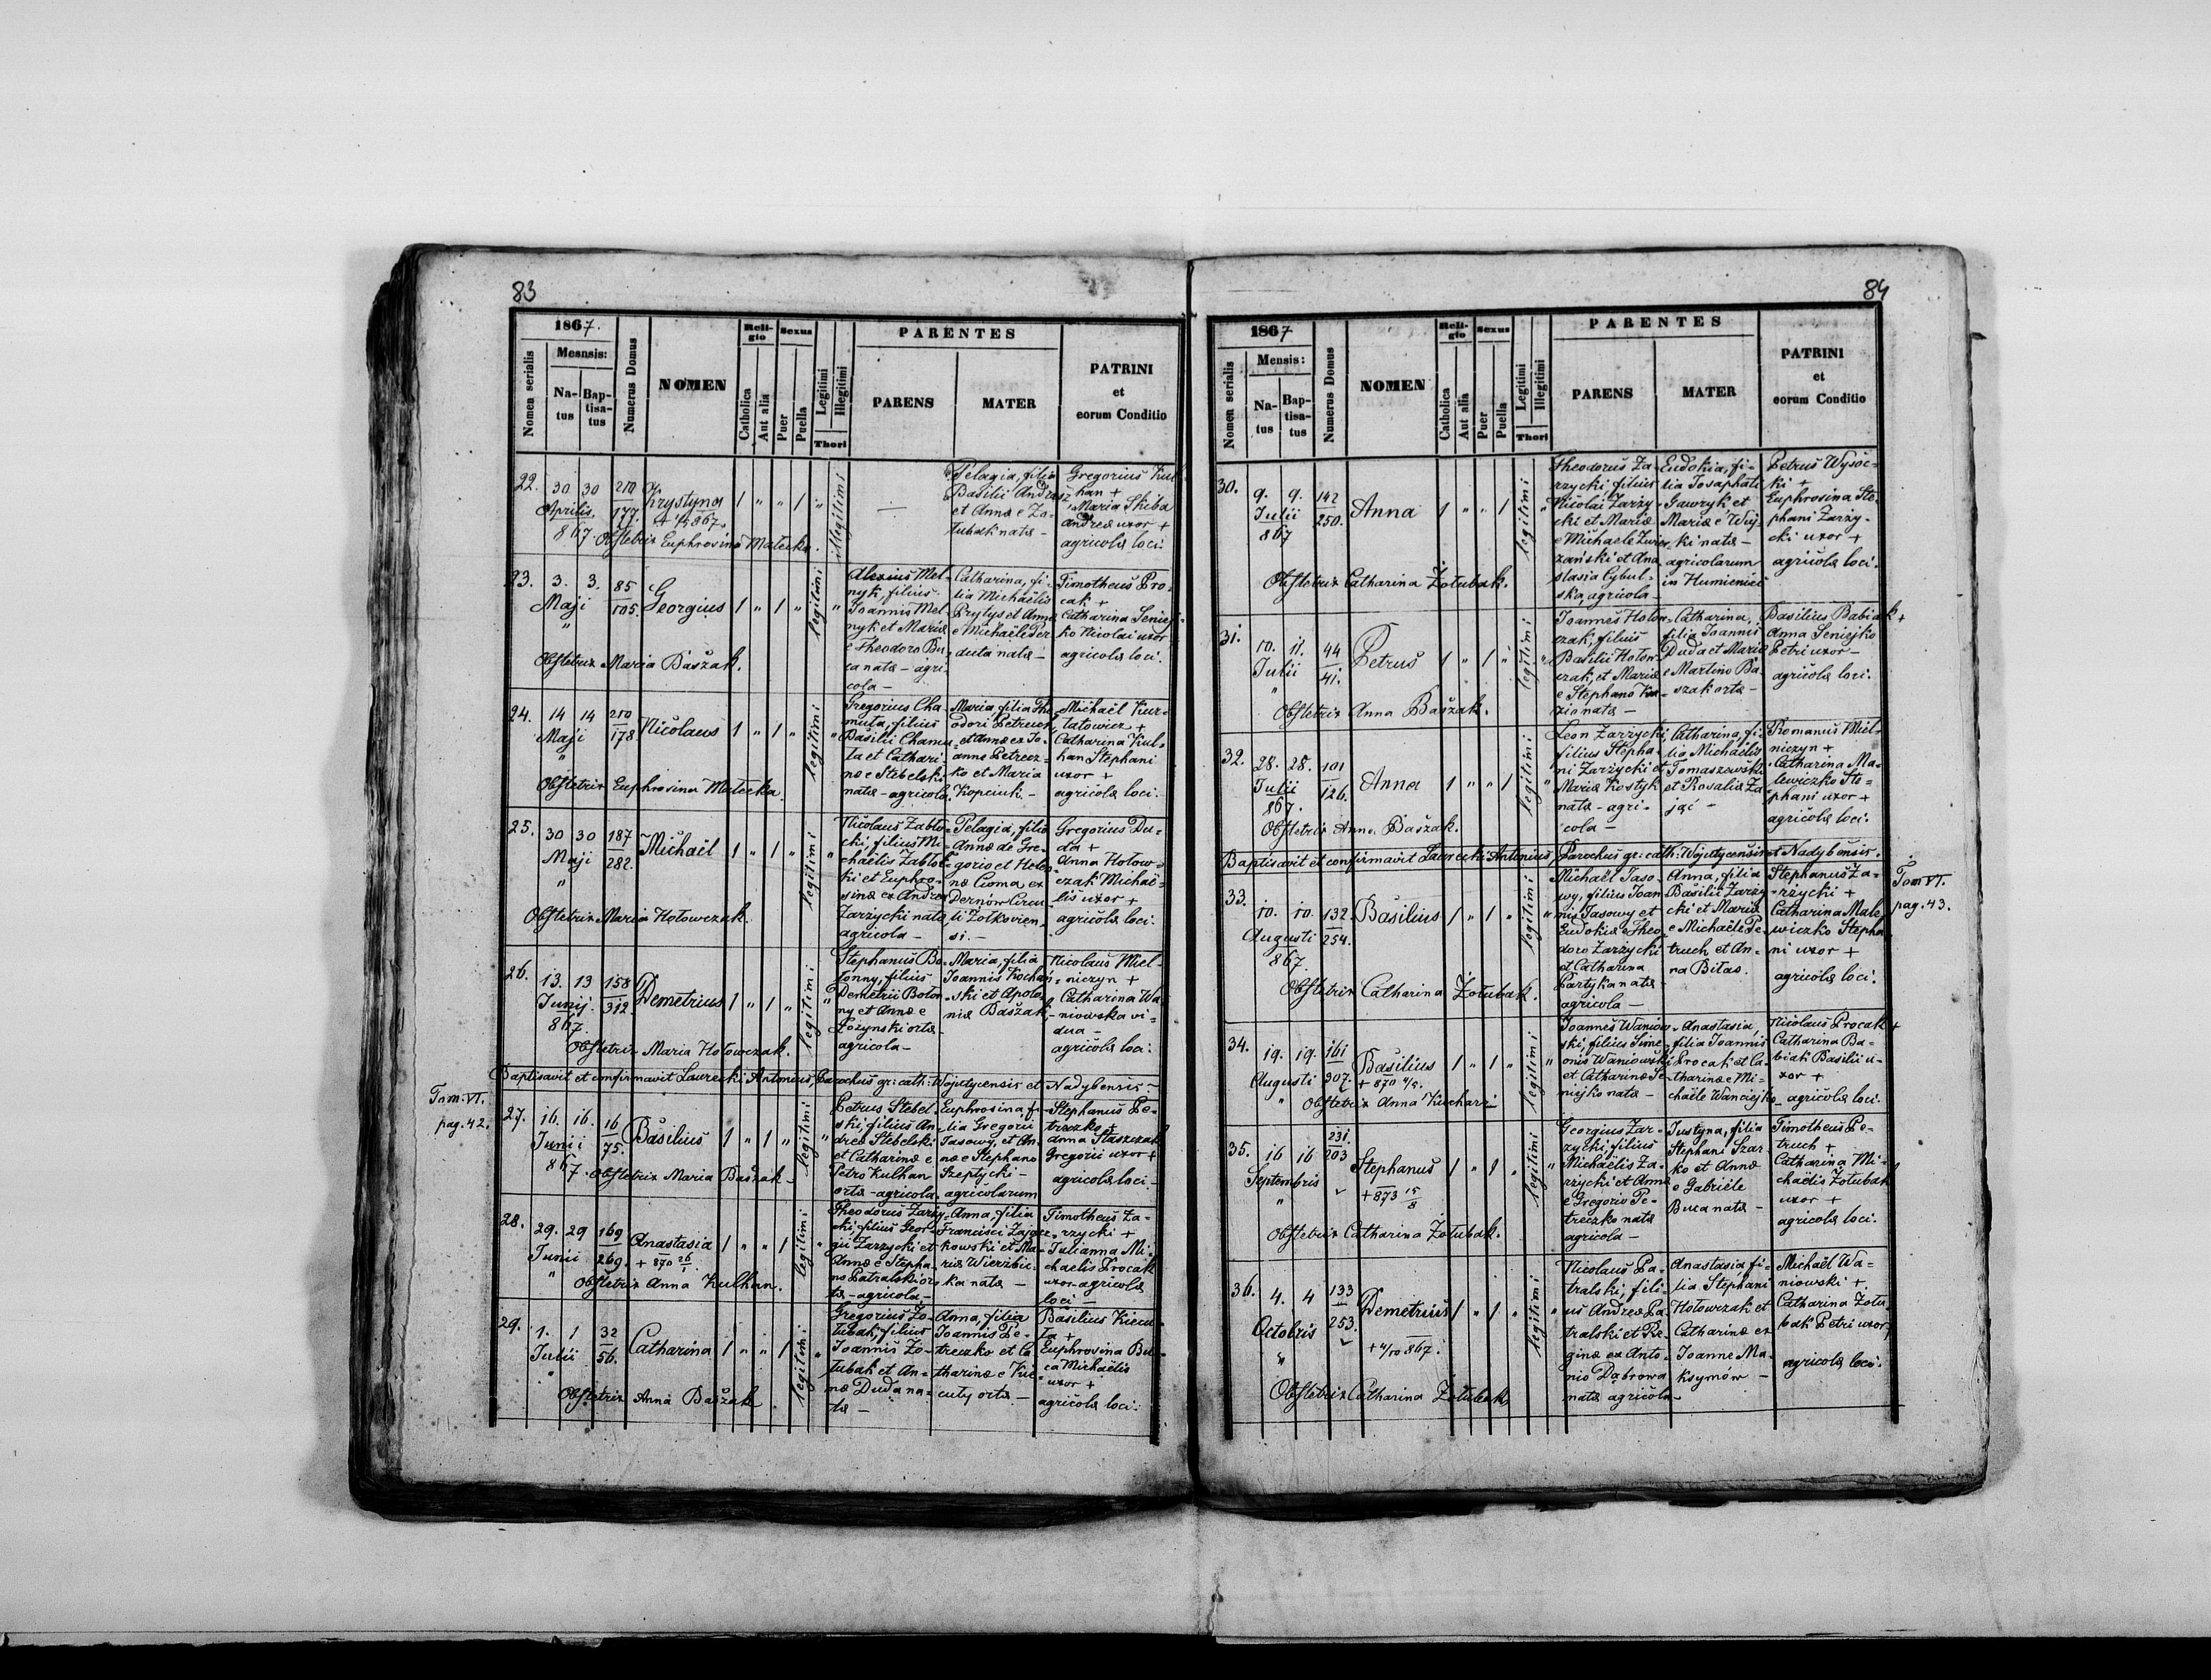 83
1867.
Nomen serialis
Mesnsis:
Na-
tus
Bap-
tisa-
tus
Numerus Domus
NOMEN
Reli-
gio
Catholica
Aut alia
Sexus
Puer
Puella
Legitimi
Illegitimi
Thori
PARENTES
PARENS
MATER
PATRINI
et
eorum Conditio
22. 30 30 210
Aprilis 177.
867.
Krystyna
1 " " 1 "
Illegitimi
—
Pelagia, filia
Basilii Andrusz
et Annæ e Zo-
łubak nata -
Gregorius Kul-
han +
Maria Skiba
Andreæ uxor +
agricolæ loci.
Obstetrix Euphrosina Małecka.
23. 3. 3. 85
Maji 105.
"
Georgius
1 " 1 "
legitimi
"
Alexius Mel-
nyk, filius
Joannis Mel-
nyk et Mariæ
e Theodoro Bu-
ca nata - agri-
cola -
Catharina, fi-
lia Michaëlis
Prytys et Annæ
e Michaële Per
duta nata -
Timotheus Pro-
cak +
Catharina Seniej-
ko Nicolai uxor
agricolæ loci.
Obstetrix Maria Baszak.
24. 14 14 210
Maji 178
"
Nicolaus
1 " 1 "
legitimi
"
Gregorius Cha-
muta, filius
Basilii Chamu-
ta et Cathari-
næ e Stebelski
natæ - agricola.
Maria filia The-
odori Petruch,
et Annæ ex Jo-
anne Petrecz-
ko et Maria
Kopciuk. -
Michaël Kur-
latowicz +
Catharina Kul-
han Stephani
uxor +
agricolæ loci.
Obstetrix Euphrosina Małecka.
25. 30 30 187
Maji 282.
"
Michaël
1 " 1 "
legitimi
"
Nicolaus Zabło-
cki, filius Mi-
chaëlis Zabłoc-
ki et Euphro-
sinæ ex Andrea
Zarzycki natæ
agricola -
Pelagia, filia
Annæ de Gre-
gorio et Hele-
næ Cioma ex
Dernów Circu-
li Żółkievien-
si. -
Gregorius Du-
da +
Anna Hołow-
czak Michaë-
lis uxor +
agricolæ loci.
Obstetrix Maria Hołowczak.
26. 13. 13 158
Junij 312.
867.
Demetrius
1 " 1 "
legitimi
"
Stephanus Bo-
łonny, filius
Demetrii Bołon-
ny et Annæ e
Łozynski ortæ -
agricola -
Maria, filia
Joannis Kochań-
ski et Apolo-
niæ Baszak.
Nicolaus Miel-
niczyn +
Catharina Wa-
niowska vi-
dua -
agricolæ loci.
Obstetrix Maria Hołowczak.
Baptisavit et confirmavit Ławrecki Antonius, Parochus gr: cath: Wojutycensis et Nadybensis -
Tom. VI.
pag. 42.
27. 16. 16. 16
Junii 75.
867.
Basilius
1 " 1 "
legitimi
"
Petrus Stebel-
ski, filius An-
dreæ Stebelski
et Catharinæ e
Petro Kulhan
ortæ - agricola
Euphrosina, fi-
lia Gregorii
Jasowy, et An-
næ e Stephano
Szeptycki -
agricolarum
Stephanus Pe-
treczko +
Anna Staszczak
Gregorii uxor +
agricolæ loci.
Obstetrix Maria Baszak -
28. 29. 29 169
Junii 269.
"
Anastasia
+ 870 26/1.
1 " " 1
legitimi
"
Theodorus Zarzy-
cki filius Geor-
gii Zarzycki et
Annæ e Stepha-
no Patralski or-
tæ - agricola -
Anna, filia
Francisci Zają-
kowski et Ma-
ria Wierzbic-
ka nata -
Timotheus Za-
rzycki +
Julianna Mi-
chaelis Procak
uxor agricolæ
loci -
Obstetrix Anna Kulhan.
29. 1. 1 32
Julii 56.
"
Catharina
1 " " 1
legitimi
"
Gregorius Żo-
łubak, filius
Joannis Żo-
łubak et An-
næ Duda na-
tæ -
Anna, filia
Joannis Pe-
treczko et Ca-
tharinæ e Ku-
cuty ortæ -
Basilius Kiecu-
ła +
Euphrosina Bu-
ca Michaëlis
uxor +
agricolæ loci.
Obstetrix Anna Baszak
84
1867
Nomen serialis
Mensis:
Na-
tus
Bap-
tisa-
tus
Numerus Domus
NOMEN
Reli-
gio
Catholica
Aut alia
Sexus
Puer
Puella
Legitimi
Illegitimi
Thori
PARENTES
PARENS
MATER
PATRINI
et
eorum Conditio
30. 9. 9. 142
Julii 250.
867
Anna
1 " " 1
legitimi
"
Theodorus Za-
rzycki filius
Nicolai Zarzy-
cki et Mariæ
e Michaele Zurow-
zański et Ana-
stasia Cybul-
ska, agricola -
Eudokia, fi-
lia Josaphati
Gawryk et
Mariæ e Wuj-
ki nata -
agricolarum
in Humieniec
Petrus Wysoc-
ki +
Euphrosina Ste-
phani Zarzy-
cki uxor +
agricolæ loci.
Obstetrix Catharina Żołubak.
31. 10. 11. 44
Julii 41.
"
Petrus
1 " 1 "
legitimi
"
Joannes Hołow-
czak, filius
Basilii Hołow-
czak, et Mariæ
e Stephano Ka-
zio natæ -
Catharina,
filia Joannis
Duda et Mariæ
e Martino Ba-
szak orta -
Basilius Babiak +
Anna Seniejko
Petri uxor -
agricolæ loci.
Obstetrix Anna Baszak.
32. 28. 28. 101
Julii 126.
867.
Anna
1 " " 1
legitimi
"
Leon Zarzycki,
filius Stepha-
ni Zarzycki et
Maria Kostyk
natæ - agri-
cola -
Catharina, fi-
lia Michaëlis
Tomaszewski
et Rosalia Za-
jąć -
Romanus Miel-
niczyn +
Catharina Ma-
lewiczko Ste-
phani uxor +
agricolæ loci.
Obstetrix Anna Baszak.
Baptisavit et confirmavit Ławrecki Antonius, Parochus gr: cath: Wojutycensis et Nadybensis.
33. 10. 10. 132
Augusti 254.
867.
Basilius
1 " 1 "
legitimi
"
Michaël Jaso-
wy, filius Joan-
nis Jasowy et
Eudokiæ e Theo-
doro Zarzycki
et Catharina
Partyka natæ
agricola -
Anna, filia
Basilii Zarzy-
cki et Mariæ
e Michaële Pe-
truch et An-
na Biłas.
Stephanus Za-
rzycki +
Catharina Male-
wiczko Stepha-
ni uxor +
agricolæ loci.
Tom VI.
pag. 43.
Obstetrix Catharina Żołubak.
34. 19. 19. 161
Augusti 307.
"
Basilius
+ 870 4/5.
1 " 1 "
legitimi
"
Joannes Waniow-
ski, filius Sime-
onis Waniowski
et Catharinæ Se-
niejko natæ -
Anastasia,
filia Joannis
Procak et Ca-
tharinæ e Mi-
chaële Wanciejko -
Nicolaus Procak +
Catharina Ba-
biak Basilii u-
xor +
agricolæ loci.
Obstetrix Anna Kuchari
35. 16 16 231.
Septembris 203
"
Stephanus
+ 873 15/8
1 " 1 "
legitimi
"
Georgius Zar-
zycki, filius
Michaëlis Za-
rzycki et Annæ
e Gregorio Pe-
treczko natæ
agricola -
Justyna, filia
Stephani Szar-
ko et Annæ
e Gabriele
Buca nata -
Timotheus Pe-
truch +
Catharina Mi-
chaëlis Żołubak
uxor +
agricolæ loci.
Obstetrix Catharina Żołubak.
36. 4. 4 133
Octobris 253.
"
Demetrius
+ 4/10 867.
1 " 1 "
legitimi
"
Nicolaus Pa-
tralski, fili-
us Andreæ Pa-
tralski et Re-
ginæ ex Anto-
nio Dąbrowa
natæ agricola -
Anastasia fi-
lia Stephani
Hołowczak et
Catharinæ ex
Joanne Ma-
ksymów -
Michaël Wa-
niowski +
Catharina Żołu-
bak Petri uxor +
agricolæ loci.
Obstetrix Catharina Żołubak